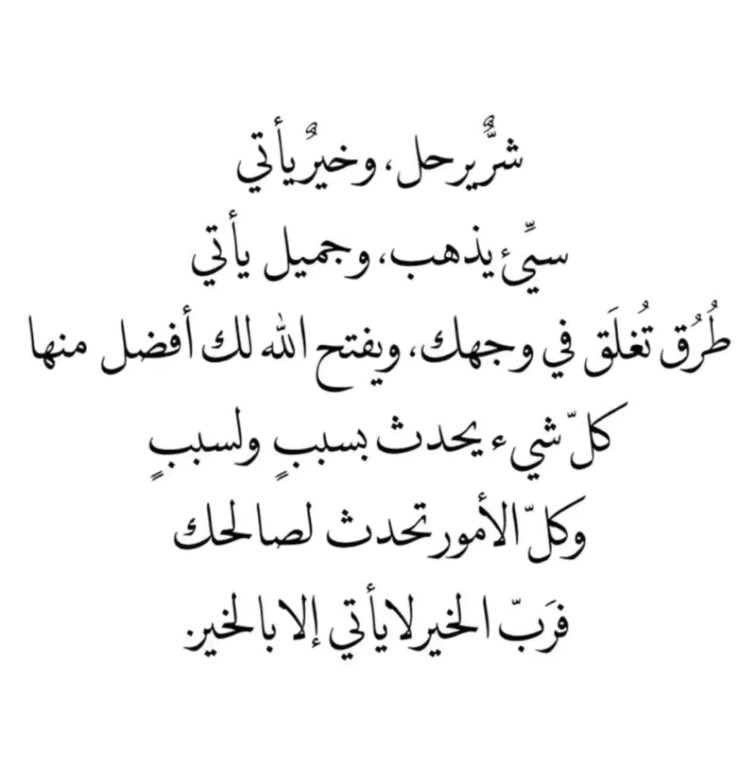 شرٌّ يرحل، وخيرٌ يأتي
سيِّئ يذهب، وجميل يأتي
طُرُق تُغلَق في وجهك، ويفتح الله لك أفضل منها
كلّ شيء يحدث بسببٍ ولسببٍ
وكلّ الأمور تحدث لصالحك
فرَبّ الخير لا يأتي إلا بالخير.